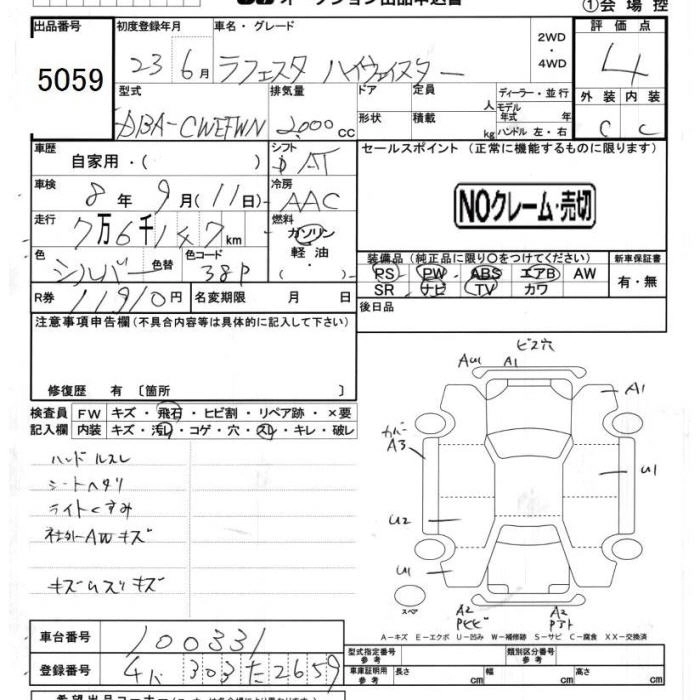 ①会場控
出品番号 初度登録年月 車名・グレード 2WD・4WD 評価点
5059 23 6月 ラフェスタ ハイウェイスター 4
型式 排気量 ドア 定員 人 ディーラー・並行 外装 内装
DBA-CWEFWN 2000cc 形状 積載 kg モデル年式 年 ハンドル 左・右 C C
車歴 自家用・( ) シフト AT セールスポイント (正常に機能するものに限ります)
車検 8年 9月(11日) 冷房 AAC
NOクレーム・売切
走行 7万6千147km 燃料 ガソリン・軽油・( )
色 シルバー 色替 色コード 38P
装備品(純正品に限り〇をつけてください) 新車保証書
PS PW ABS エアB AW 有・無
SR ナビ TV カワ
R券 11910円 名変期限 月 日 後日品
注意事項申告欄(不具合内容等は具体的に記入して下さい)
修復歴 有 〔箇所 〕
検査員 FW キズ・飛石・ヒビ割・リペア跡・×要
記入欄 内装 キズ・汚レ・コゲ・穴・スレ・キレ・破レ
ハンドルスレ
シートヘタリ
ライトくすみ
社外AWキズ
キズUスリキズ
ビス穴
AU1 A1
A1
カバー
A3
U1
U2
U1
スペ
A2 A2
A-キズ E-エクボ U-凹み W-補修跡 S-サビ C-腐食 XX-交換済
車台番号 100331
登録番号 303 た 2659
型式指定番号 参考 類別区分番号 参考
車庫証明用 参考 長さ cm 幅 cm 高さ cm